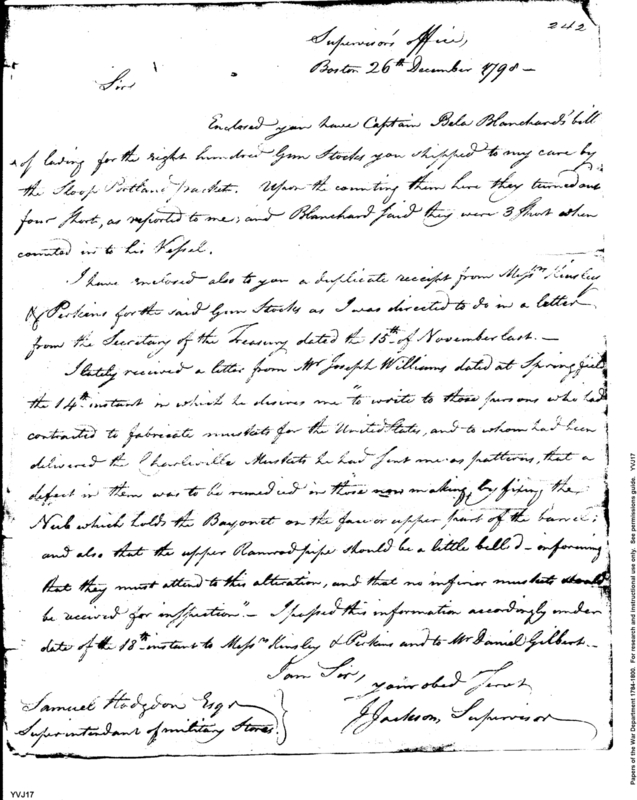 242
Supervisor's Office,
Boston 26th December 1798 —
Sir
Enclosed you have Captain Bela Blanchard's bill
of lading for the eight hundred Gun Stocks you shipped to my care by
the Sloop Portland Packet. Upon the counting them here they turned out
four short, as reported to me; and Blanchard said they were 3 short when
counted in to his Vessel.
I have enclosed also to you a duplicate receipt from Messrs Kinsley
& Perkins for the said Gun Stocks as I was directed to do in a letter
from the Secretary of the Treasury dated the 15th of November last. —
I lately received a letter from Mr Joseph Williams dated at Springfield
the 14th instant in which he desires me "to write to those persons who had
contracted to fabricate muskets for the United States, and to whom had been
delivered the Charleville Muskets he had sent me as patterns, that a
defect in them was to be remedied in those now making, by fixing the
Nub which holds the Bayonet on the face or upper part of the barrel;
and also that the upper Ramrod pipe should be a little bell'd — informing
that they must attend to this alteration, and that no inferior muskets would
be received for inspection." — I passed this information accordingly under
date of the 18th instant to Messrs Kinsley & Perkins and to Mr Daniel Gilbert. —
I am Sir,
your obed Servt
J Jackson, Supervisor
Samuel Hodgdon Esqr
Superintendant of military Stores.
YVJ17
Papers of the War Department 1784-1800. For research and instructional use only. See permissions guide. YVJ17